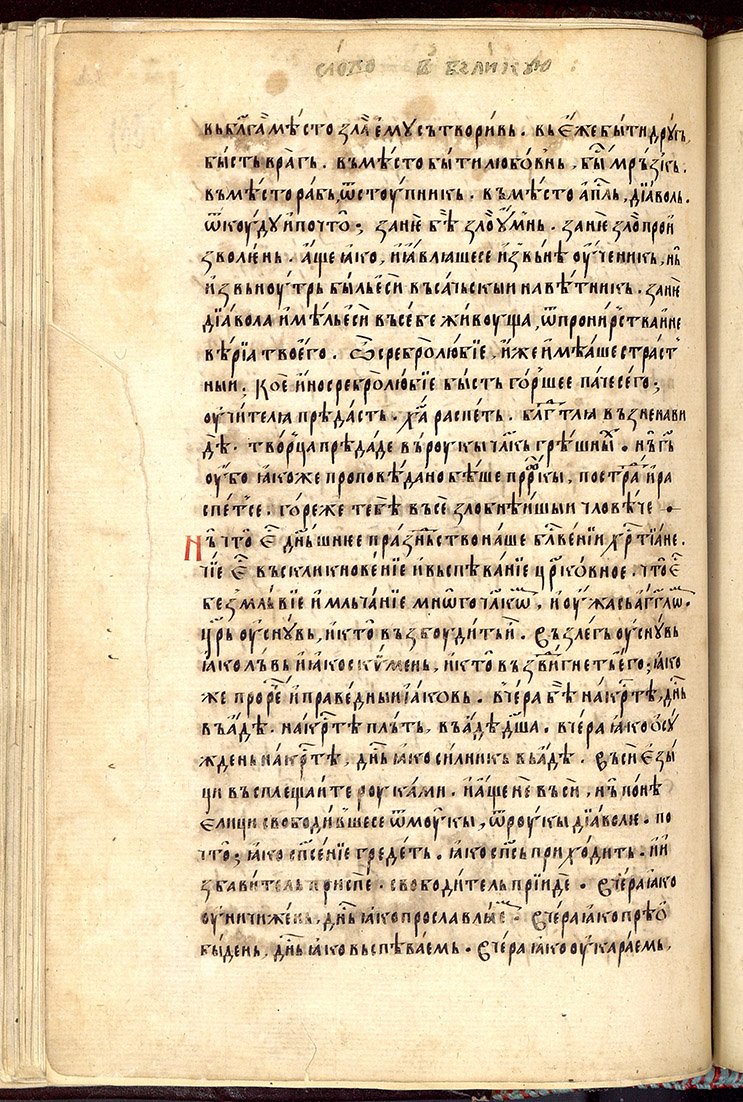 слово в҃ великꙋю :
вь бл҃га̀ мѣ́сто зла̀ е́мꙋ сътвори́вь . вь є҆́же бы́ти дрꙋ́гь,
бы́сть вра́гь . въ мѣ́сто бы́ти любо́внь , бы́ мръ́зѣкь .
въ мѣ́сто ра́бь , ѿстоу́пникь . въ мѣ́сто а҆пⷭ҇ль , дїа́воль .
ѿкоу́дꙋ и҆ почто̀ ; зане́же бѣ̀ зло̀ꙋ́мнь . зане́же зло̀ прои
зволе́нь . а҆́ще ꙗ҆́ко , и҆ ꙗ҆влꙗ́шесе и҆звьнѣ̀ оу҆ченикь , нь̀
и҆звьноу́трь бы́ль є҆сѝ въса́чьскыи навѣ́тникь . зане́же
дїа́вола и҆мѣ́ль є҆сѝ въ себѐ живоу́ща , ѿ прони́рьства и не
вѣ́рїа твоє҆́го . Ѽ сребролю́бїе , и҆́же и҆мѣ́аше стра́ст
ный . Коє҆́ и҆но̀ сребролю́бїе бы́сть го́ршее па́че сего̀ ;
оу҆чи́телꙗ прѣда́сть . хⷭ҇а̀ распе́ть . бл҃гⷣтлꙗ възненави
дѣ̀ . тво́рца прѣда́де въ роу́кы чл҃кь грѣ́шны́хь . нь̀ гь҃
оу҆́бо ꙗ҆́коже проповѣ́дано бѣ́ше прⷪ҇ро́кы , постра́да и҆ ра
спе́тсе . го́реже тебѣ̀ въсѐ злобнѣ́ишыи чловѣ́че .
Нь̀ что̀ єⷭ҇ дн҃ь́шнꙗе пра́зньство на́ше бл҃ве́нїи хрⷭ҇тїа́не .
чїѐ єⷭ҇ въскликнове́нїе и҆ въспѣва́нїе цр҃ко́вное . что̀ єⷭ҇
безмль́вїе и҆ мльча́нїе мнѡ́го чл҃кѡмь , и҆ оу҆́жась а҆́гг҃лѡмь .
цр҃ь оу҆сноу́вь , и҆ кто̀ възбоу́дить и҆̀ . Въ зле́гь оу҆сноу́вь
ꙗ҆ко львь и҆ ꙗ҆ко скѵ́мень , и҆ кто̀ възви́гнеть є҆го̀ ; ꙗ҆ко
же прорⷱ҇е́ и҆ пра́ведныи і҆а́ковь . вче́ра бѣ̀ на кртⷭ҇ѣ̀ , дн҃ь
въ а҆́дѣ . на кртⷭ҇ѣ̀ пль́ть , въ а҆́дѣ дш҃а̀ . вче́ра ꙗ҆ко ѡсꙋ
ждень на кртⷭ҇ѣ̀ , дн҃ь ꙗ҆ко си́лникь въ а҆́дѣ . Въсѝ є҆зы
ци въсплеща́ите роу́ками . и҆ а҆́ще нѐ въсѝ , нь̀ по́нѣ
є҆ли́ци свободи́вшесе ѿ моу́кы , ѿ роу́кы дїа́волѥ . по
что̀ ; ꙗ҆ко сп҃се́нїе греде́ть . ꙗ҆ко сп҃сь прихо́дить . и҆ и
збави́тель приспѣ̀ . свободи́тель прїи́де . Вче́ра ꙗ҆ко
оу҆ничиже́нь , дн҃ь ꙗ҆ко прославлꙗ́емь . Вче́ра ꙗ҆ко прѣѡ
бы́день , дн҃ь ꙗ҆ко въспѣва́емь . Вче́ра ꙗ҆ко оу҆кара́емь ,